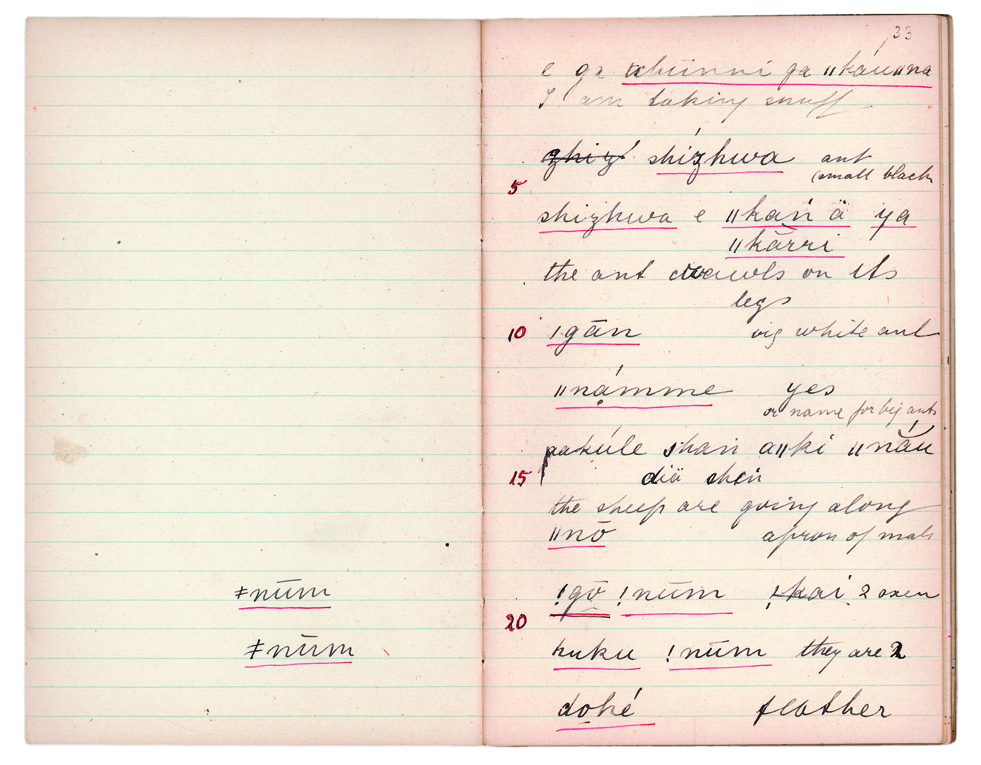 33
e ga khūnni ga ‖káu‖na
I am taking snuff
shízhwa ant
5 (small black
shizhwa e ‖kań ä ya
‖kārri
the ant crawls on its
legs
10 !gān big white ant
‖nạ́mme yes
or name for big ants
pakúle shan a‖ki ‖nău
15 diä shin
the sheep are going along
‖nō apron of male
≠nūm
!gō !nūm !kai 2 oxen
20
≠nūm
huku !nūm they are 2
dohé feather